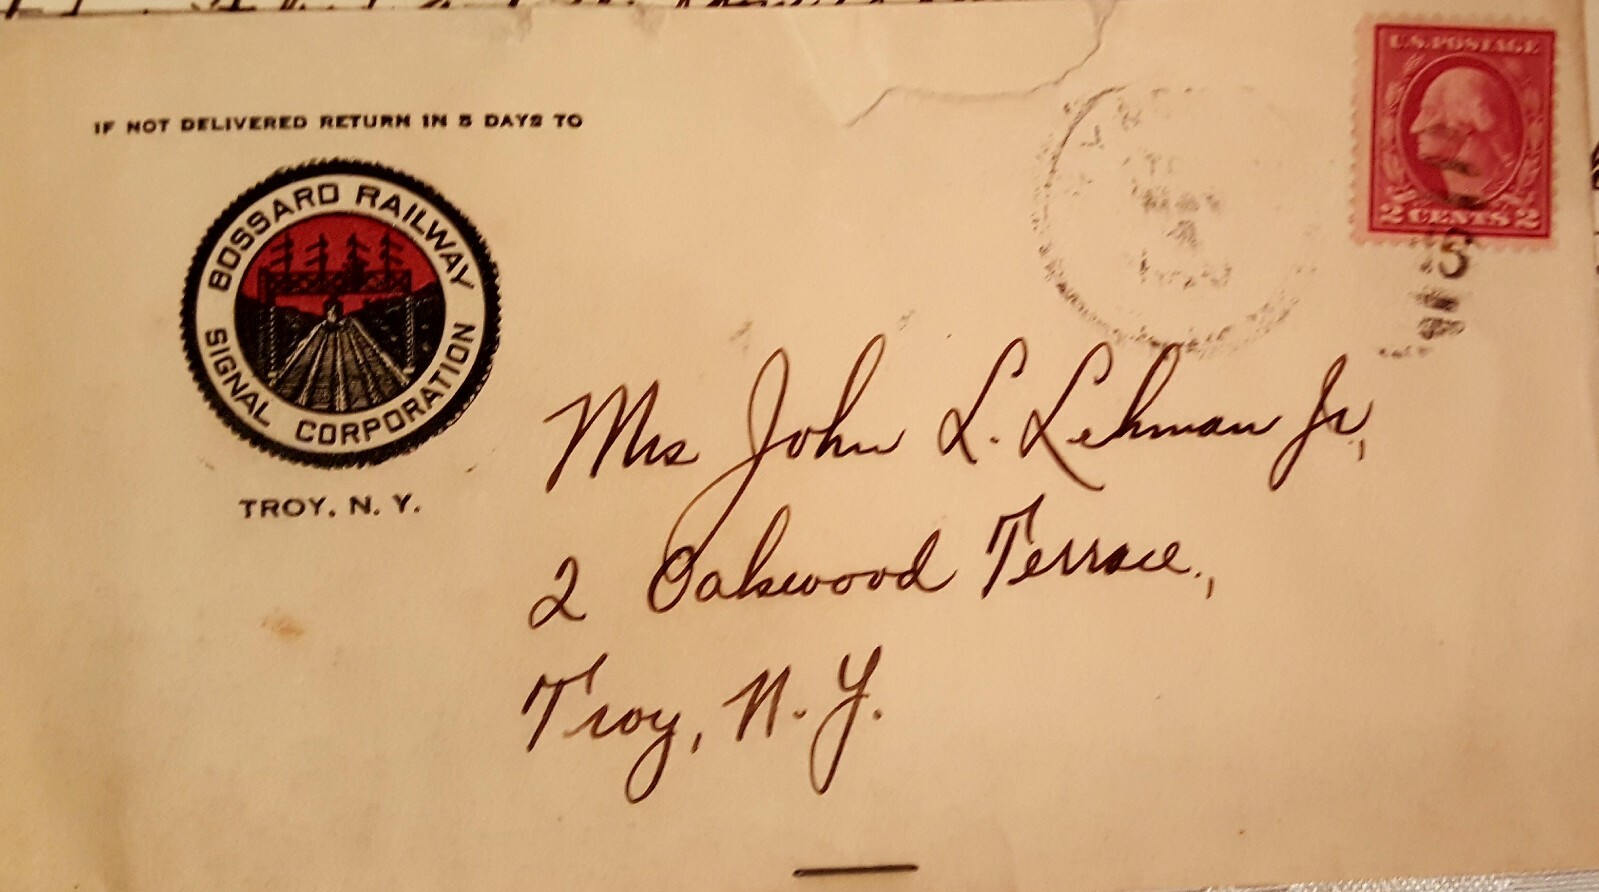 IF NOT DELIVERED RETURN IN 5 DAYS TO
BOSSARD RAILWAY
SIGNAL CORPORATION
TROY, N. Y.
U.S. POSTAGE
2 CENTS 2
Mrs John L. Lehman Jr,
2 Oakwood Terrace.,
Troy, N. Y.